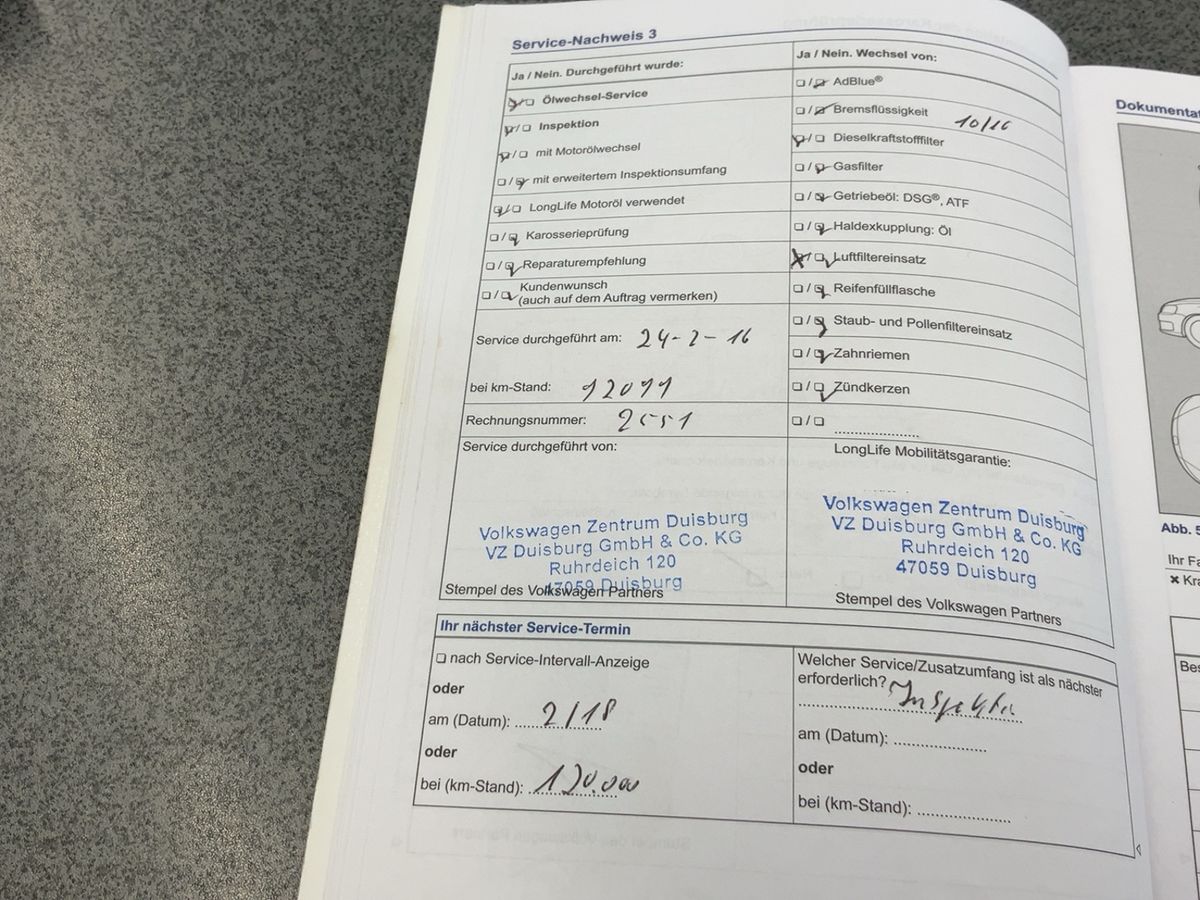 Service-Nachweis 3
Ja / Nein. Durchgeführt wurde:
Ölwechsel-Service
Inspektion
mit Motorölwechsel
mit erweitertem Inspektionsumfang
LongLife Motoröl verwendet
Karosserieprüfung
Reparaturempfehlung
Kundenwunsch
(auch auf dem Auftrag vermerken)
Service durchgeführt am: 24-2-16
bei km-Stand:
Rechnungsnummer: 2551
Service durchgeführt von:
Volkswagen Zentrum Duisburg
VZ Duisburg GmbH & Co. KG
Ruhrdeich 120
47059 Duisburg
Stempel des Volkswagen Partners
Ja / Nein. Wechsel von:
AdBlue®
Bremsflüssigkeit 10/16
Dieselkraftstofffilter
Gasfilter
Getriebeöl: DSG®, ATF
Haldexkupplung: Öl
Luftfiltereinsatz
Reifenfüllflasche
Staub- und Pollenfiltereinsatz
Zahnriemen
Zündkerzen
LongLife Mobilitätsgarantie:
Volkswagen Zentrum Duisburg
VZ Duisburg GmbH & Co. KG
Ruhrdeich 120
47059 Duisburg
Stempel des Volkswagen Partners
Ihr nächster Service-Termin
nach Service-Intervall-Anzeige
oder
am (Datum): 2/18
oder
bei (km-Stand): 120.000
Welcher Service/Zusatzumfang ist als nächster
erforderlich? Inspektion
am (Datum):
oder
bei (km-Stand):
Abb. 5